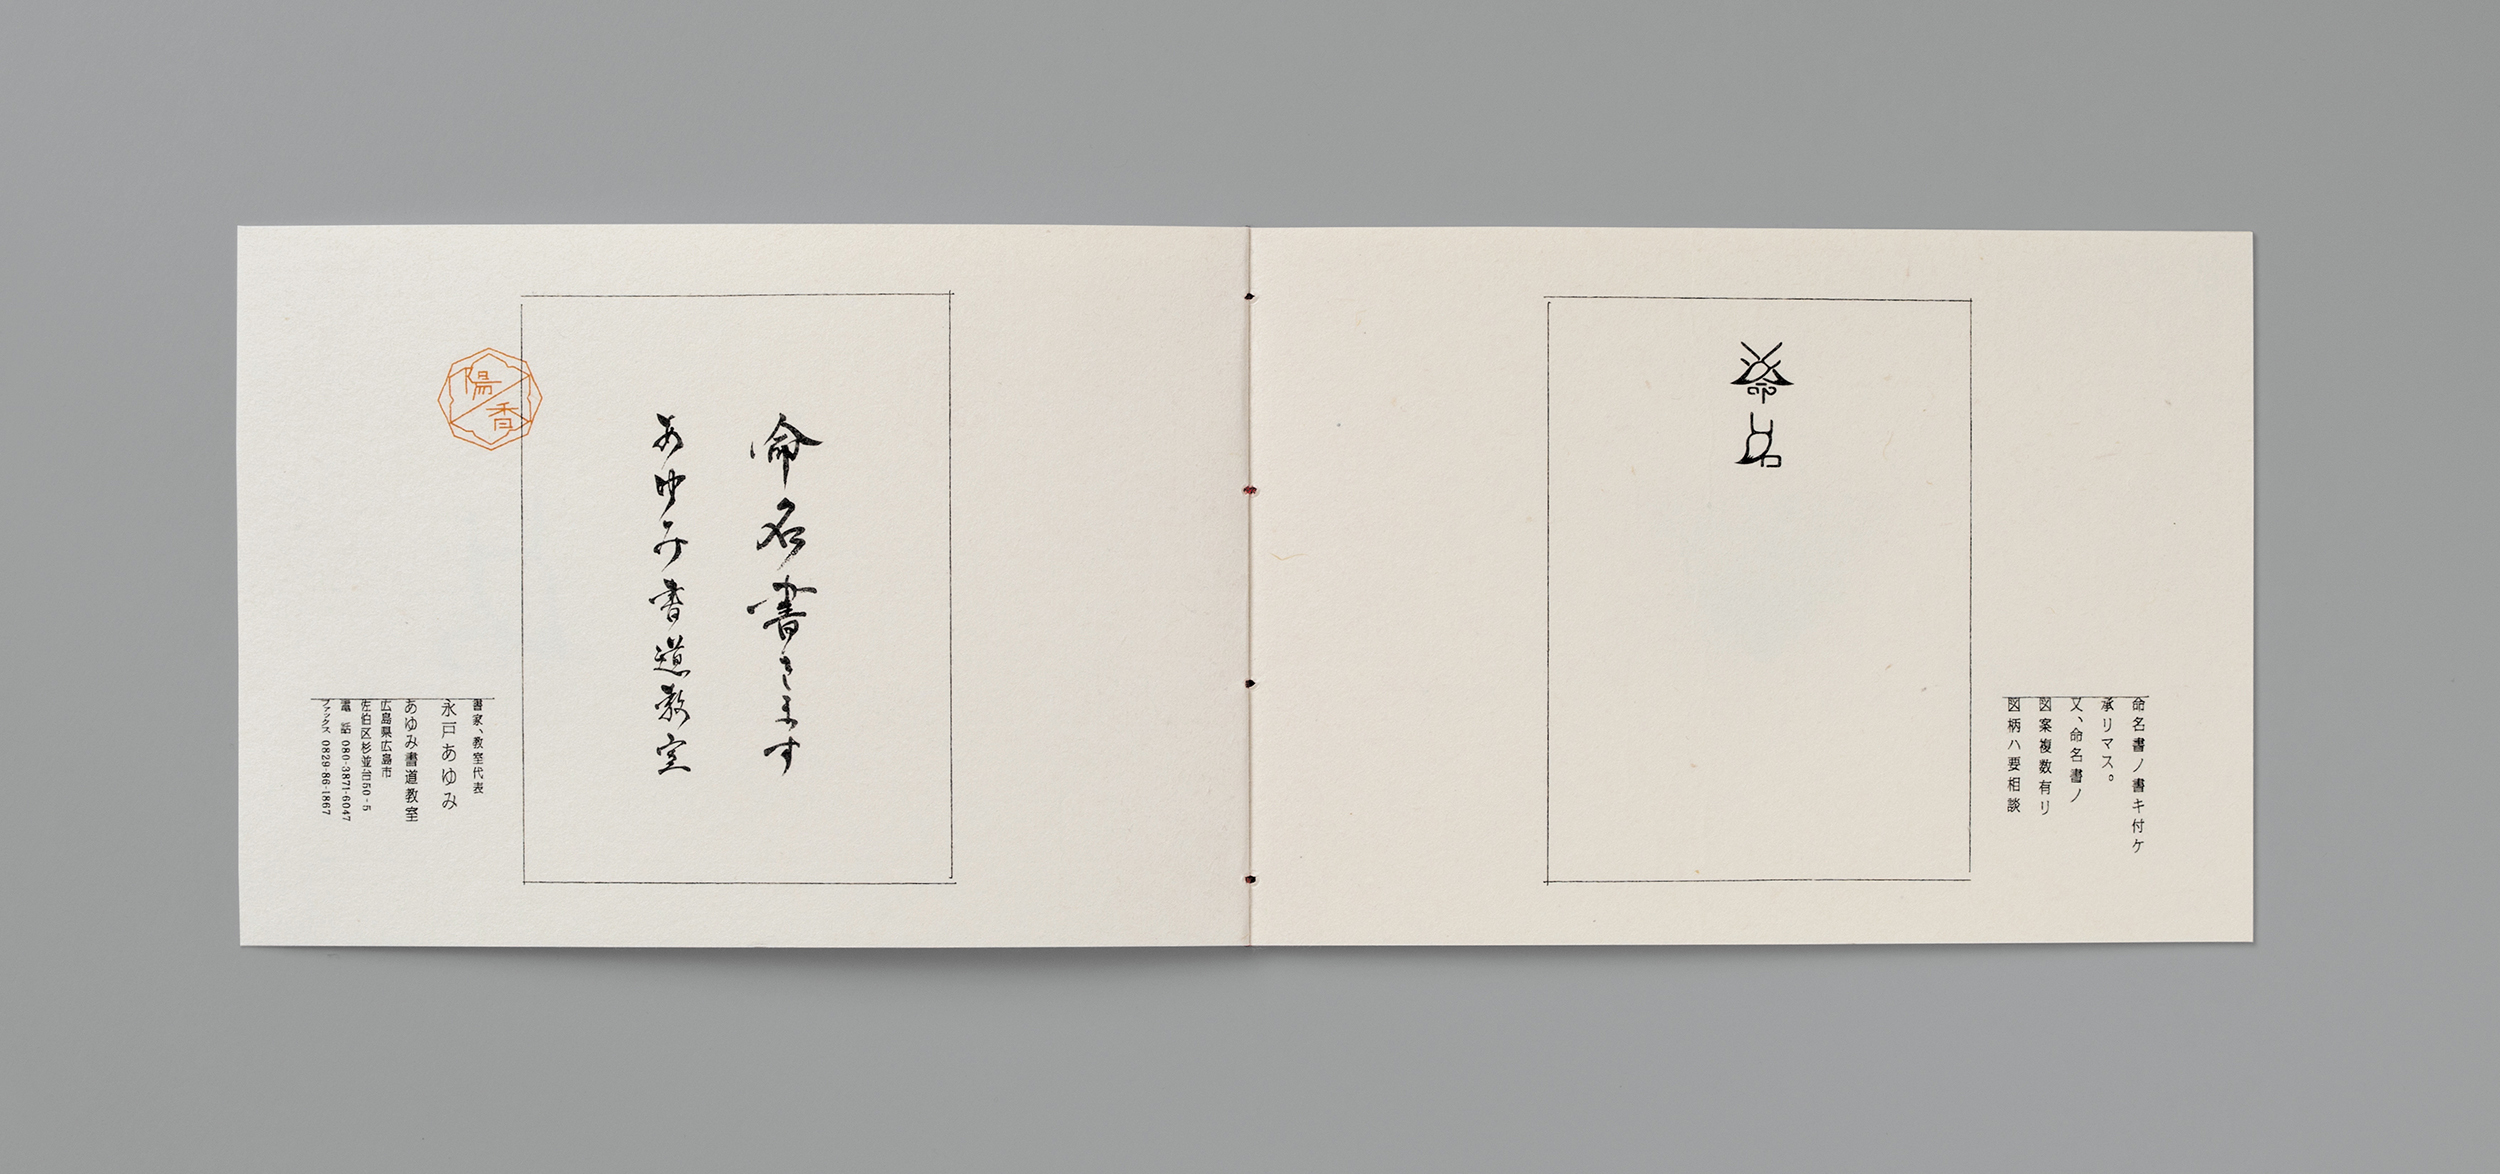 命名
命名書ノ書キ付ケ
承リマス。
又、命名書ノ
図案複数有リ
図柄ハ要相談
命名書きます
あゆみ書道教室
陽香
書家、教室代表
永戸あゆみ
あゆみ書道教室
広島県広島市
佐伯区杉並台50-5
電話 080-3871-6047
ファックス 0829-86-1867